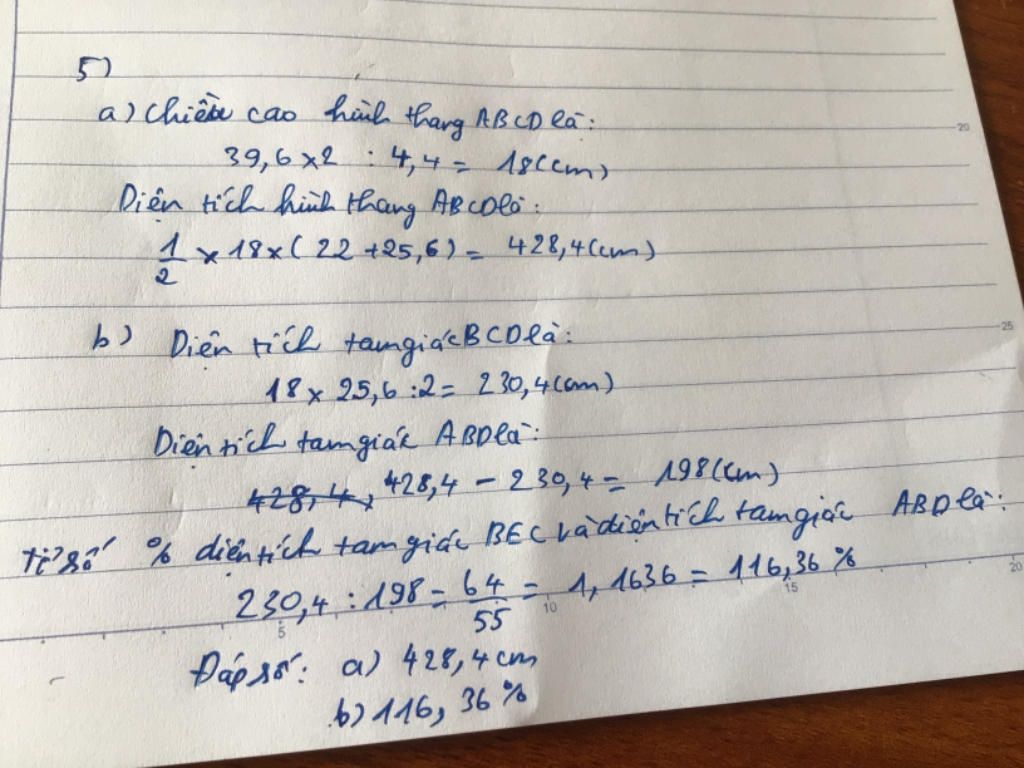 5)
a) Chiều cao hình thang ABCD là:
39,6 x 2 : 4,4 = 18(cm)
Diện tích hình thang ABCD là:
1/2 x 18 x ( 22 + 25,6) = 428,4(cm)
b) Diện tích tam giác BCD là:
18 x 25,6 : 2 = 230,4(cm)
Diện tích tam giác ABD là:
428,4, 428,4 - 230,4 = 198(cm)
Tỉ số % diện tích tam giác BEC và diện tích tam giác ABD là:
230,4 : 198 = 64/55 = 1,1636 = 116,36 %
Đáp số: a) 428,4 cm
b) 116, 36 %
20
25
5
10
15
20